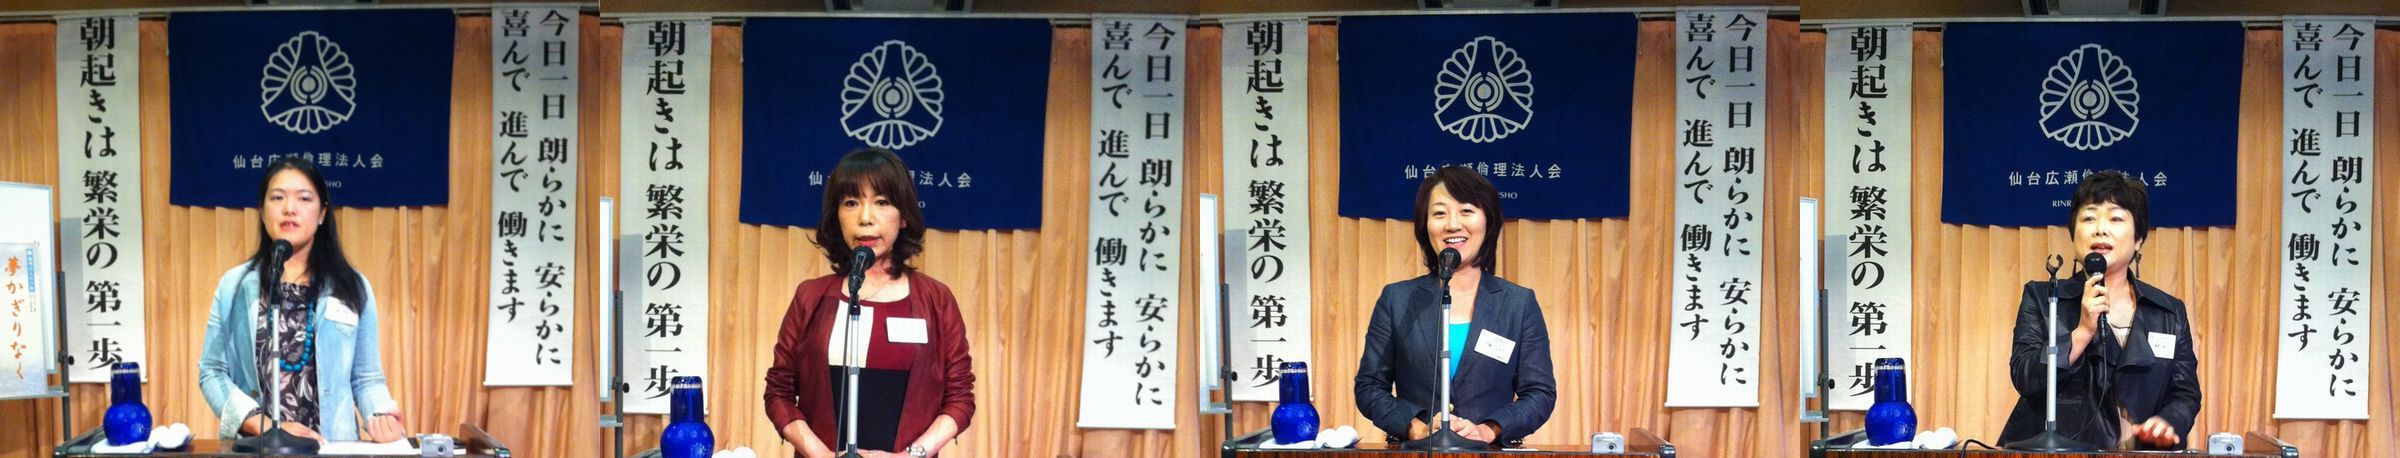 朝起きは 繁栄の 第一歩
仙台広瀬倫理法人会
SHO
今日一日 朗らかに 安らかに
喜んで 進んで 働きます
夢かぎりなく
朝起きは 繁栄の 第一歩
仙台 理法人会
HO
今日一日 朗らかに 安らかに
喜んで 進んで 働きます
朝起きは 繁栄の 第一歩
仙台広瀬倫理法人会
SHO
今日一日 朗らかに 安らかに
喜んで 進んで 働きます
朝起きは 繁栄の 第一歩
仙台広瀬倫理法人会
RINR
今日一日 朗らかに 安らかに
喜んで 進んで 働きます